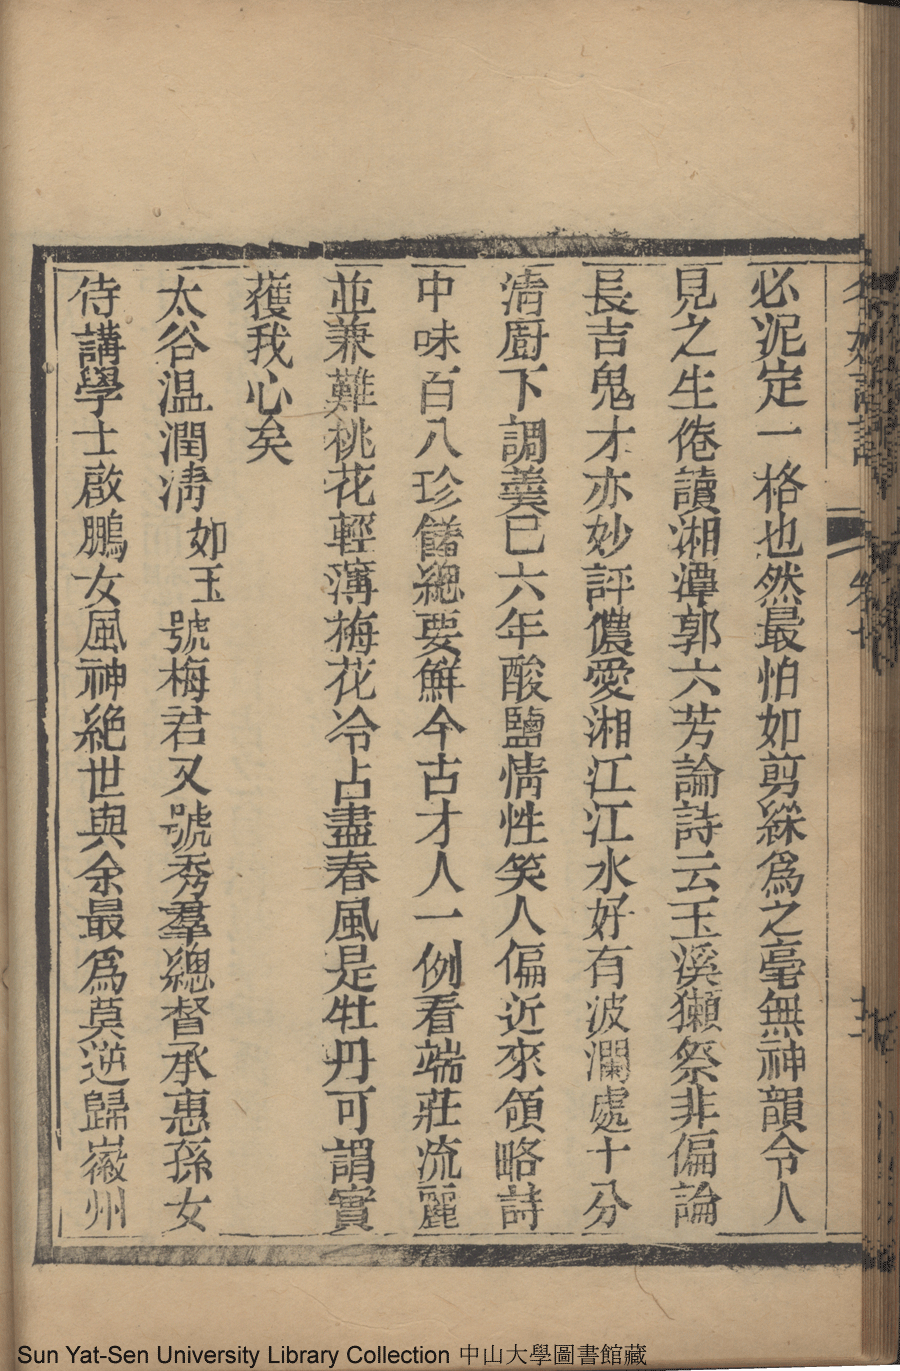 必泥定一格也然最怕如剪綵爲之毫無神韻令人
見之生倦讀湘潭郭六芳論詩云玉溪獺祭非偏論
長吉鬼才亦妙評儂愛湘江江水好有波瀾處十分
清廚下調羹已六年酸鹽情性笑人偏近來領略詩
中味百八珍饈總要鮮今古才人一例看端莊流麗
並兼難桃花輕薄梅花冷占盡春風是牡丹可謂實
獲我心矣
太谷温潤清如玉號梅君又號秀羣總督承惠孫女
侍講學士啟鵬女風神絕世與余最爲莫逆歸嶶州
Sun Yat-Sen University Library Collection 中山大學圖書館藏